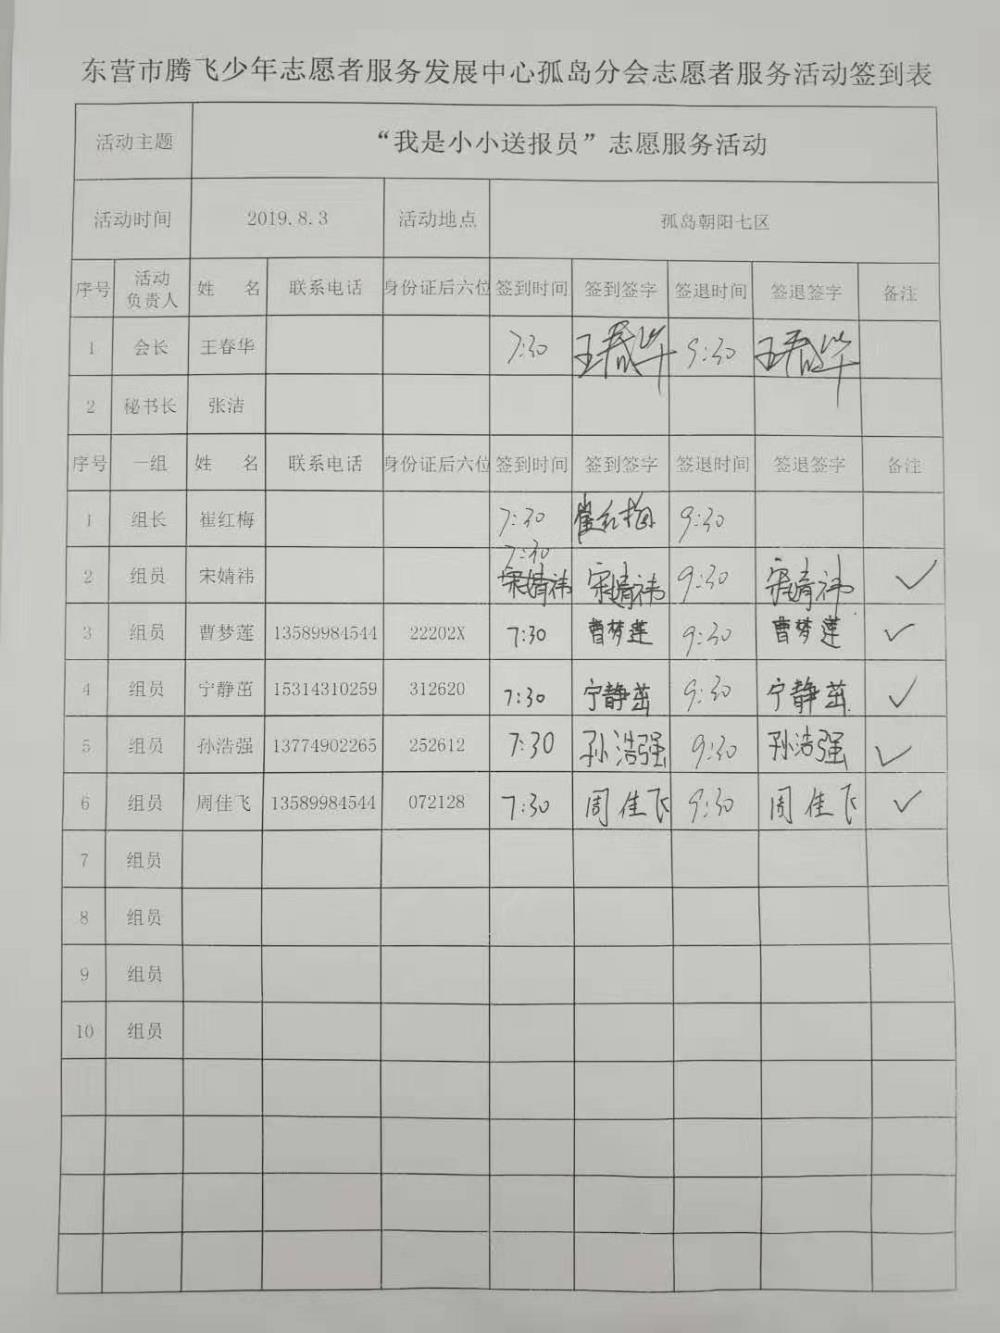 东营市腾飞少年志愿者服务发展中心孤岛分会志愿者服务活动签到表
活动主题 “我是小小送报员”志愿服务活动
活动时间 2019.8.3 活动地点 孤岛朝阳七区
序号 活动负责人 姓 名 联系电话 身份证后六位 签到时间 签到签字 签退时间 签退签字 备注
1 会长 王春华 7:30 王春华 9:30 王春华
2 秘书长 张洁
序号 一组 姓 名 联系电话 身份证后六位 签到时间 签到签字 签退时间 签退签字 备注
1 组长 崔红梅 7:30 崔红梅 9:30
7:30
2 组员 宋婧祎 宋婧祎 宋婧祎 9:30 宋婧祎 ✓
3 组员 曹梦莲 13589984544 22202X 7:30 曹梦莲 9:30 曹梦莲 ✓
4 组员 宁静茁 15314310259 312620 7:30 宁静茁 9:30 宁静茁 ✓
5 组员 孙浩强 13774902265 252612 7:30 孙浩强 9:30 孙浩强 ✓
6 组员 周佳飞 13589984544 072128 7:30 周佳飞 9:30 周佳飞 ✓
7 组员
8 组员
9 组员
10 组员